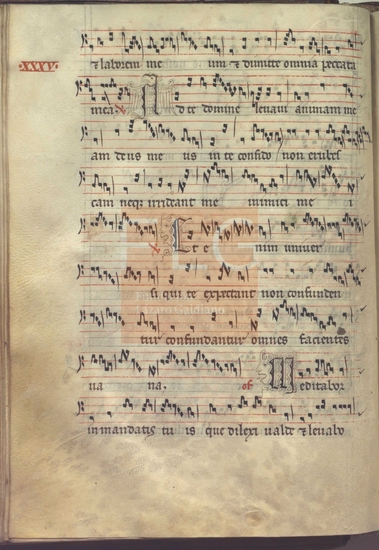 & laborem me um & dimitte omnia peccata
XXXV.
mea. Ad te domine leuaui animam me
am deus me us in te confido non erubes
cam neq; irrideant me inimici me i
Et e nim uniuer
si qui te expectant non confunden
tur confundantur omnes facientes
ua na. of Meditabor
in mandatis tu is que dilexi ualde & leuabo